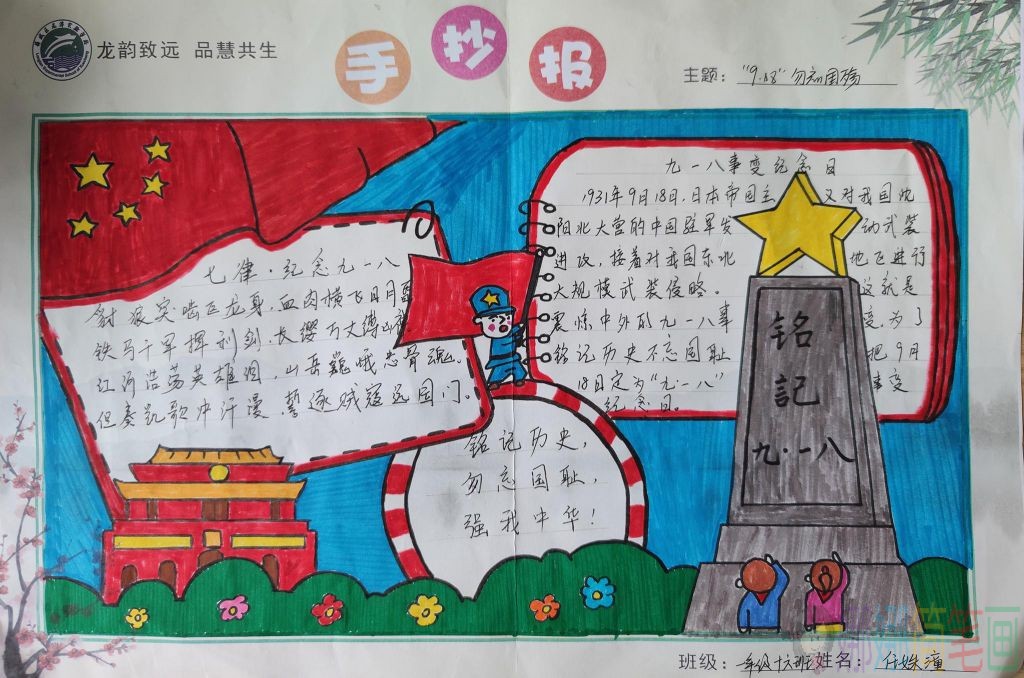 龙韵致远 品慧共生
手抄报
主题: "9.18"勿忘国殇
七律·纪念九一八
豺狼突啮巨龙身,血肉横飞日月
铁马千军挥利剑,长缨万丈缚
红河浩荡英雄泪,山岳巍峨忠骨魂。
但奏凯歌冲汗漫,誓逐贼寇远国门。
九一八事变纪念日
1931年9月18日,日本帝国主 又对我国沈
阳北大营的中国驻军发 动武装
进攻,接着对我国东北 地飞进行
大规模武装侵略。 这就是
震惊中外的九一八事 变为了
铭记历史不忘国耻 把9月
18日定为"九一八" 事变
纪念日。
铭记历史,
勿忘国耻,
强我中华!
铭
記
九·一八
班级: 一年级十六班 姓名: 任姝潼